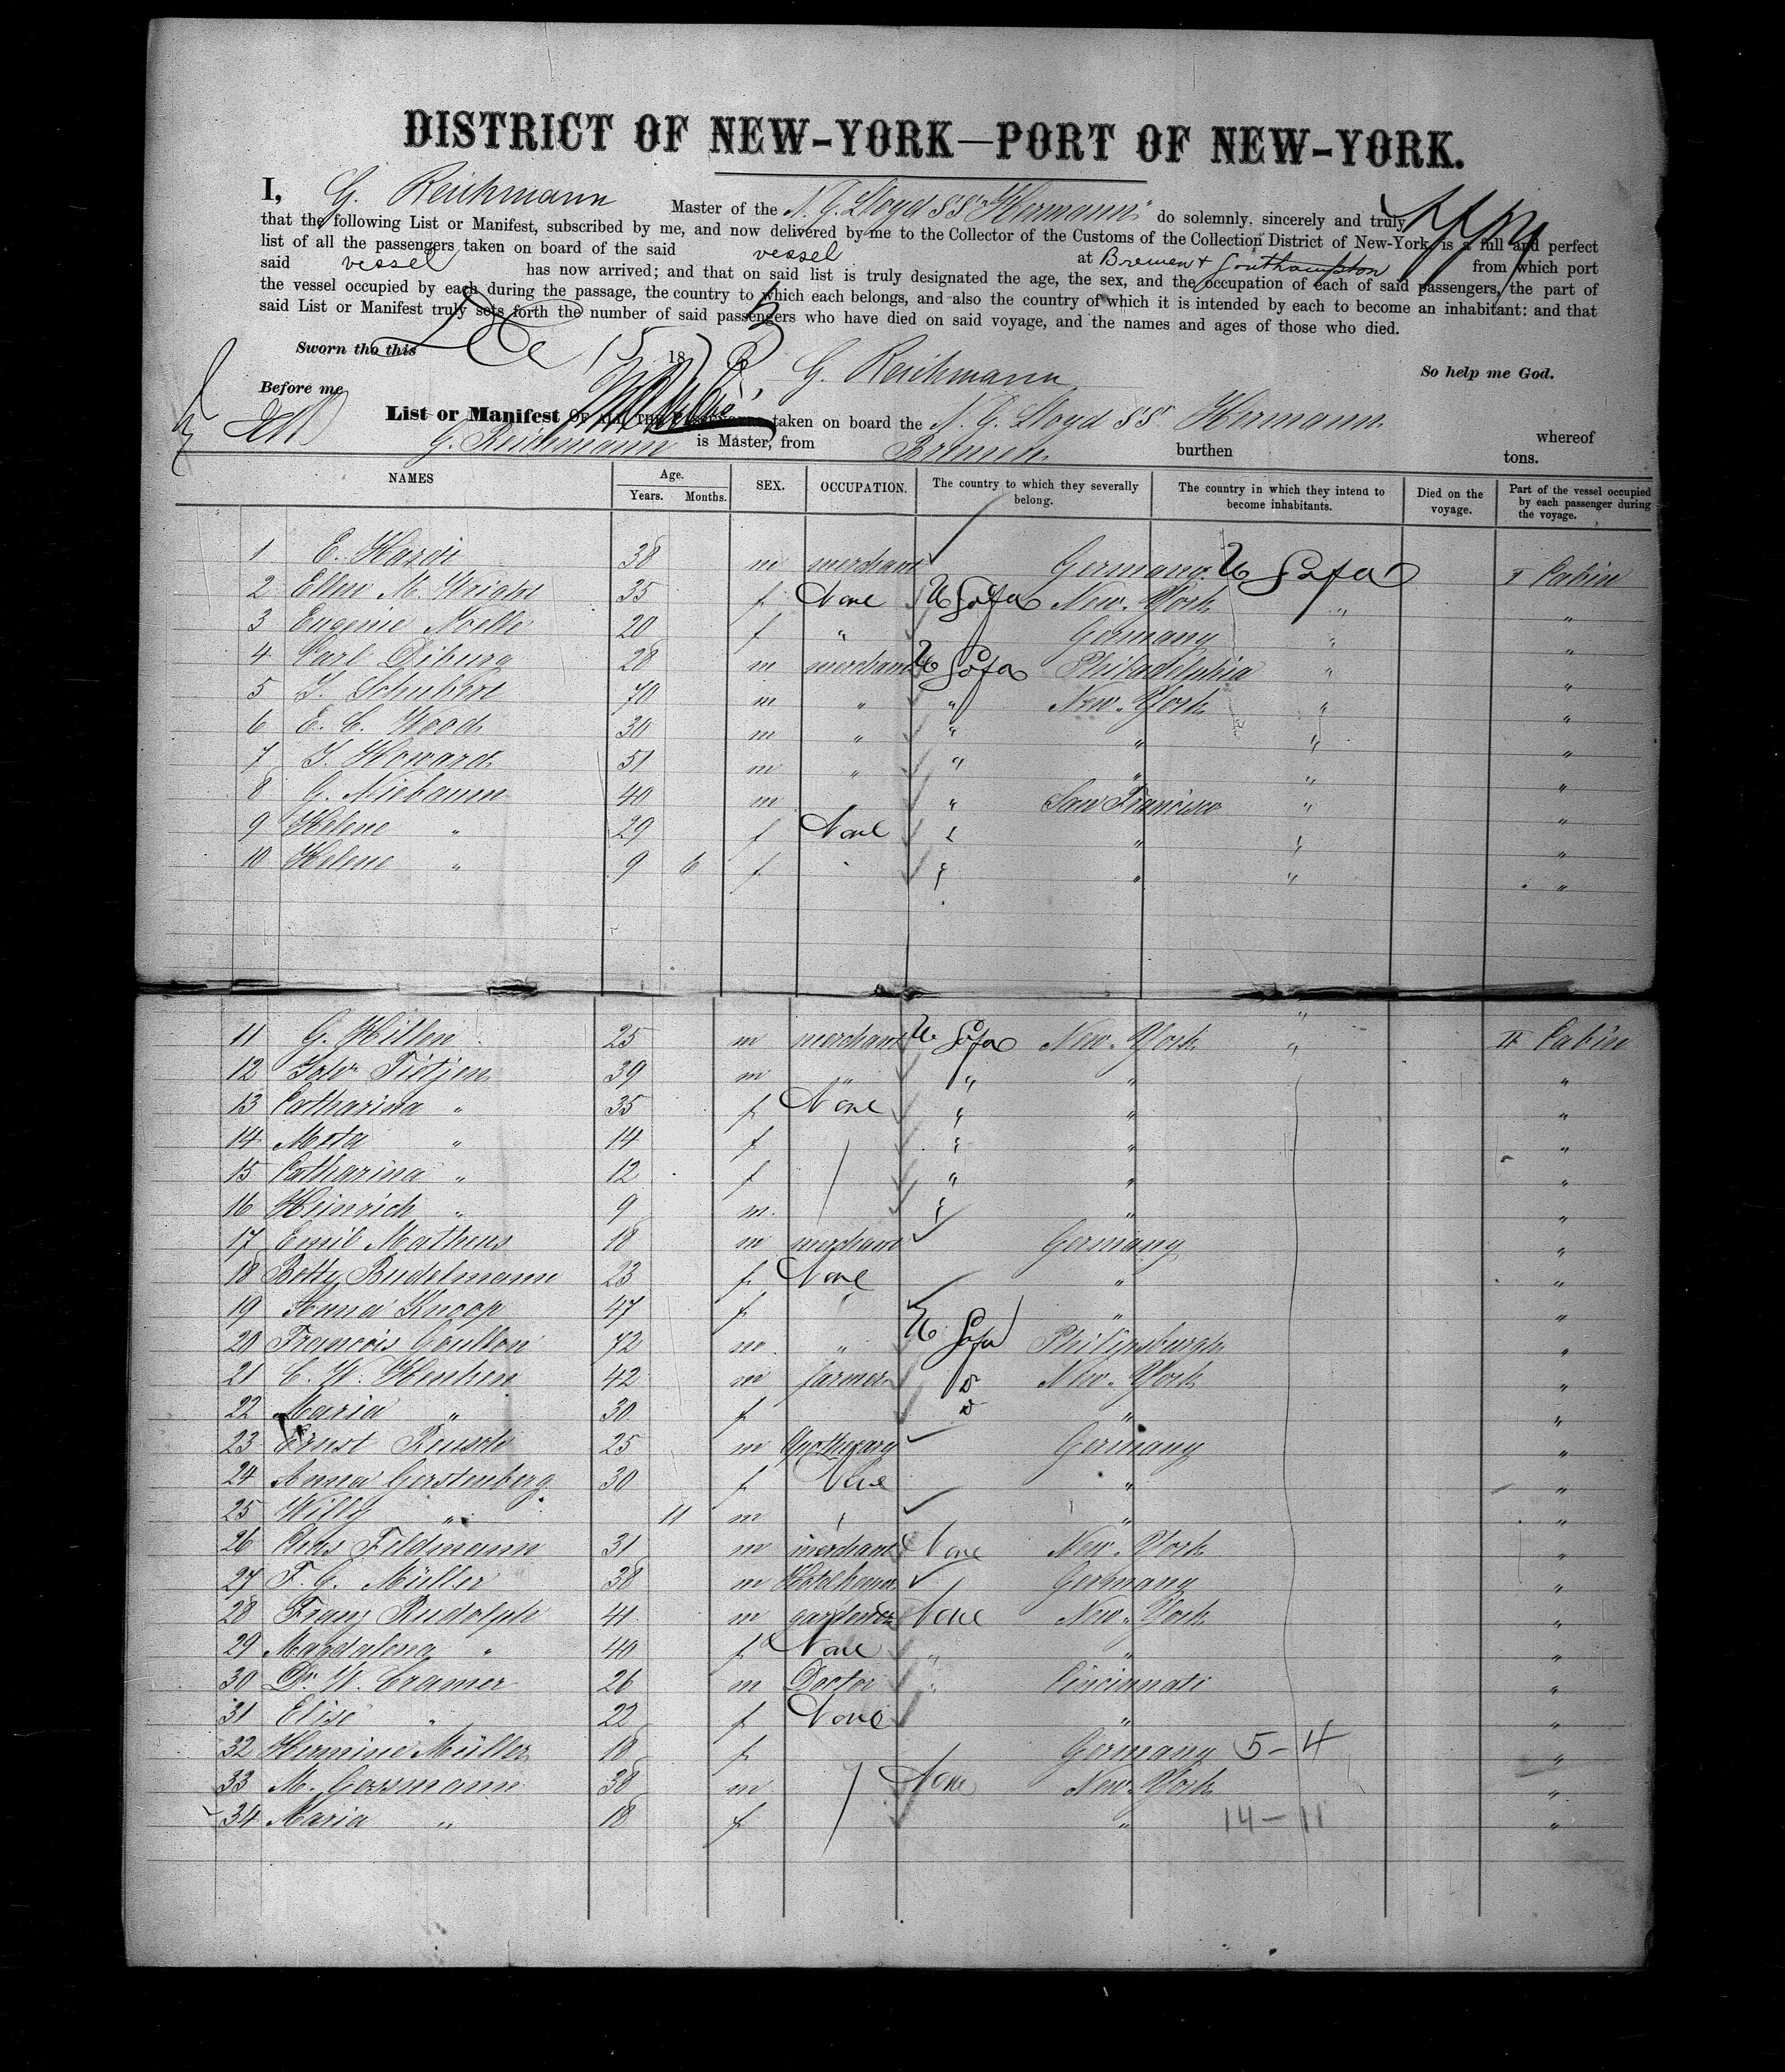 DISTRICT OF NEW-YORK—PORT OF NEW-YORK.
I, G. Reichmann Master of the N. G. Lloyd SS "Hermann" do solemnly, sincerely and truly
that the following List or Manifest, subscribed by me, and now delivered by me to the Collector of the Customs of the Collection District of New-York, is a full and perfect
list of all the passengers taken on board of the said vessel at Bremen + Southampton from which port
said vessel has now arrived; and that on said list is truly designated the age, the sex, and the occupation of each of said passengers, the part of
the vessel occupied by each during the passage, the country to which each belongs, and also the country of which it is intended by each to become an inhabitant: and that
said List or Manifest truly sets forth the number of said passengers who have died on said voyage, and the names and ages of those who died.
Sworn tho this Dec 15 187 G. Reichmann So help me God.
Before me
List or Manifest OF ALL THE PASSENGERS taken on board the N. G. Lloyd SS Hermann whereof
G. Reichmann is Master, from Bremen burthen tons.
NAMES Age. Years. Months. SEX. OCCUPATION. The country to which they severally belong. The country in which they intend to become inhabitants. Died on the voyage. Part of the vessel occupied by each passenger during the voyage.
1 E. Hardt 38 m merchant Germany U S of a I Cabin
2 Ellen M. Wright 35 f None U S of a New-York " "
3 Eugenie Noelle 20 f " Germany " "
4 Carl Diburg 28 m merchant U S of a Philadelphia " "
5 Schubert 70 m " " New-York " "
6 E. C. Wood 30 m " " " " "
7 Howard 51 m " " " " "
8 G. Niebaum 40 m " San Francisco " "
9 Helene " 29 f None " " " "
10 Helene " 9 6 f " " " "
11 G. Hillen 25 m merchant U S of a New-York " II Cabin
12 Joh. Tietjen 39 m " " " "
13 Catharina " 35 f None " " "
14 Meta " 14 f " " "
15 Catharina " 12 f " " "
16 Heinrich " 9 m " " "
17 Emil Matheus 18 m merchant Germany "
18 Betty Budelmann 23 f None " "
19 Knoop 47 f " "
20 Francois Coulton 72 m " U S of a Philipsburgh "
21 C. W. Henken 42 m farmer D New-York "
22 Maria " 30 f D " "
23 Ernst Reusch 25 m Apothecary Germany "
24 Anna Gerstenberg 30 f None " "
25 Willy " 11 m " " "
26 Feldmann 31 m merchant None New-York "
27 F. G. Müller 38 m Germany "
28 Franz Rudolph 41 m gardener None New-York "
29 Magdalena " 40 f None " " "
30 Dr. W. Cramer 26 m Doctor " Cincinnati "
31 Elise " 22 f None " "
32 Hermine Müller 18 f Germany 5-4 "
33 M. Gossmann 38 m None New-York "
34 Maria " 18 f " 14-11 "